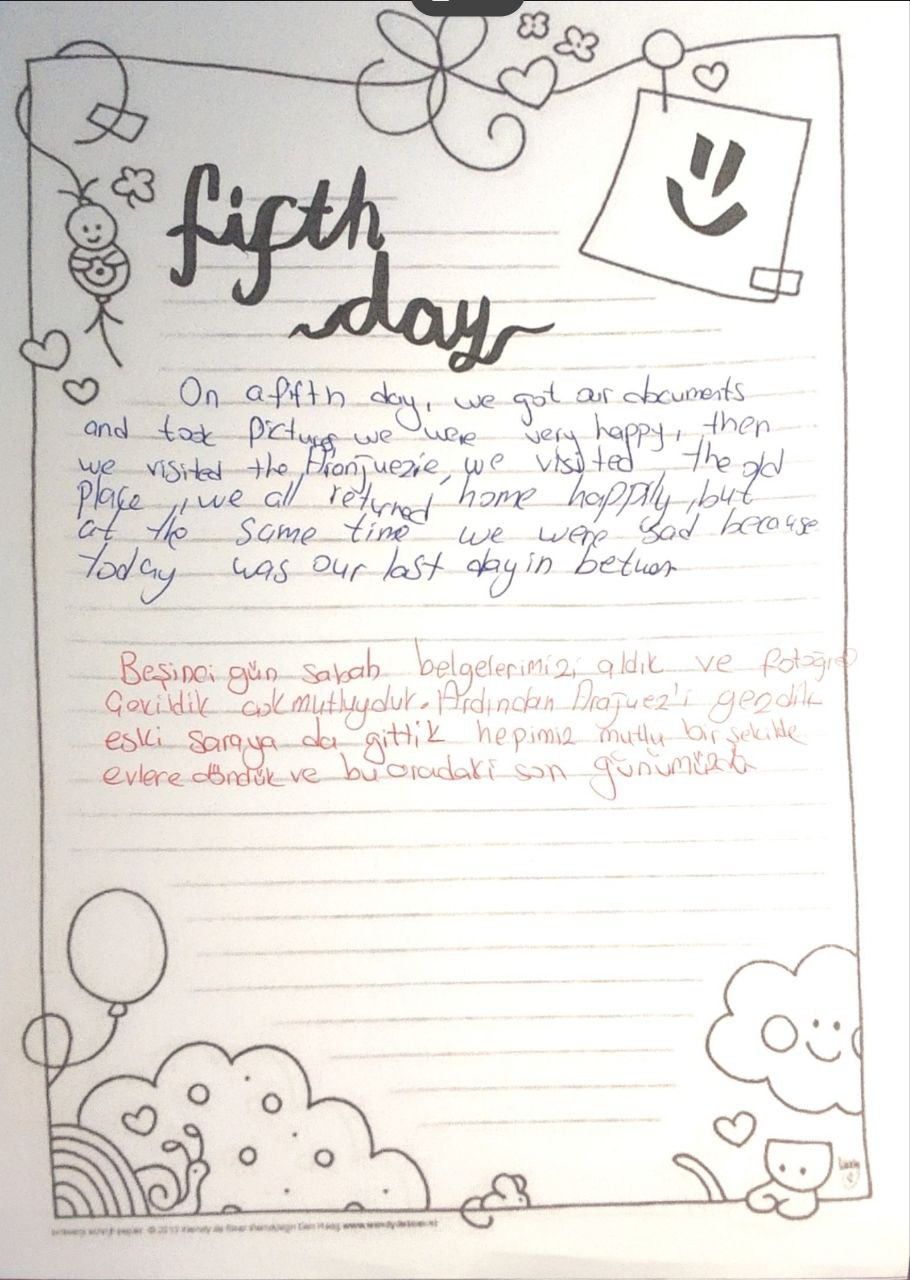 fifth
day
On a fifth day, we got our documents
and took pictures we were very happy, then
we visited the, we visited the old
place, we all returned home happily, but
at the same time we were sad because
today was our last day in
Beşinci gün sabah belgelerimizi aldık ve fotoğraf
Çekildik çok mutluyduk. Ardından Arajuez'i gezdik
eski saraya da gittik hepimiz mutlu bir şekilde
evlere döndük ve bu oradaki son günümüzdü
www.wendydeboer.nl